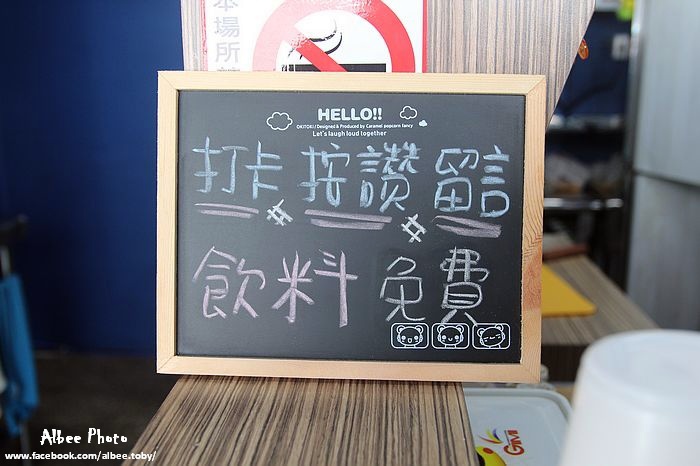 本場所
HELLO!!
OKITOKI / Designed & Produced by Caramel popcorn fancy
Let's laugh loud together
打卡 # 按讚 # 留言
飲料 免費
Albee Photo
www.facebook.com/albee.toby/
GiMi